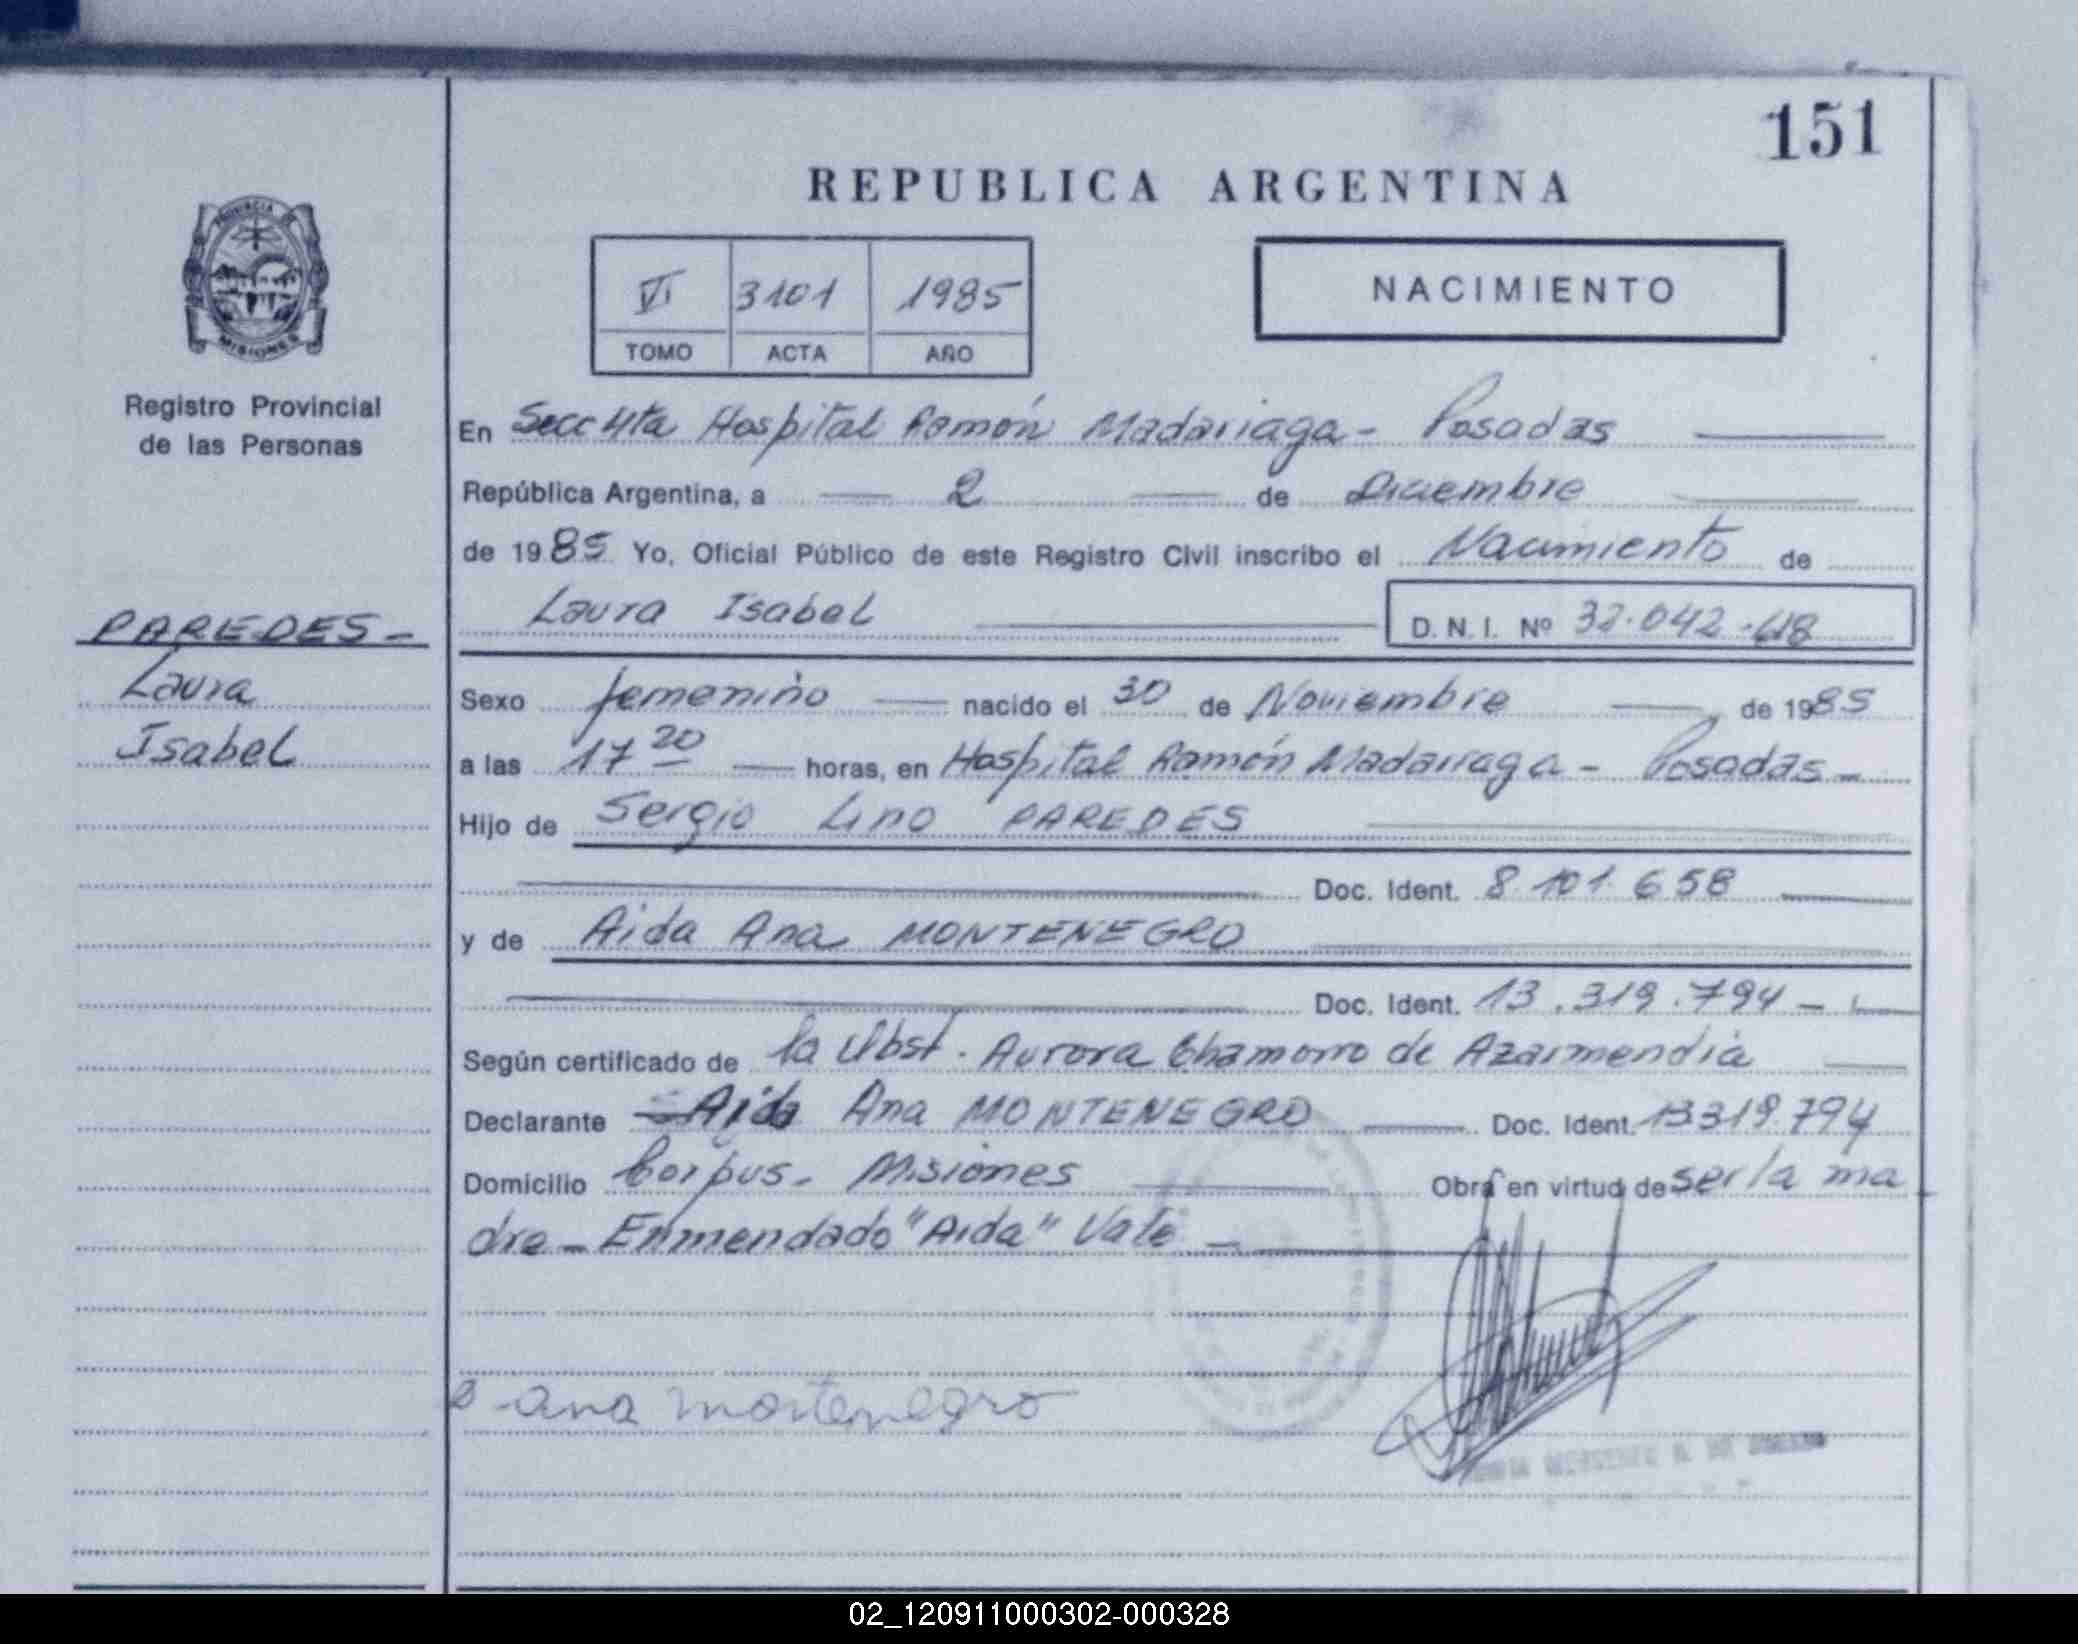 151
REPUBLICA ARGENTINA
PROVINCIA DE
MISIONES
Registro Provincial
de las Personas
VI 3101 1985
TOMO ACTA AÑO
NACIMIENTO
En Secc 4ta Hospital Ramón Madariaga - Posadas
República Argentina, a 2 de Diciembre
de 1985 Yo, Oficial Público de este Registro Civil inscribo el Nacimiento de
Laura Isabel D. N. I. Nº
PAREDES -
Laura
Isabel
Sexo femenino nacido el 30 de Noviembre de 1985
a las 17 20 horas, en Hospital Ramón Madariaga - Posadas -
Hijo de Sergio Lino PAREDES
Doc. Ident. 8.101.658
y de Aida Ana MONTENEGRO
Doc. Ident. 13.319.794 -
Según certificado de la Obst. Aurora Chamorro de Azarmendia
Declarante Aida Ana MONTENEGRO Doc. Ident. 13319.794
Domicilio Corpus - Misiones Obra en virtud de ser la ma
dre - Enmendado "Aida" Vale -
Ana Montenegro
02_120911000302-000328